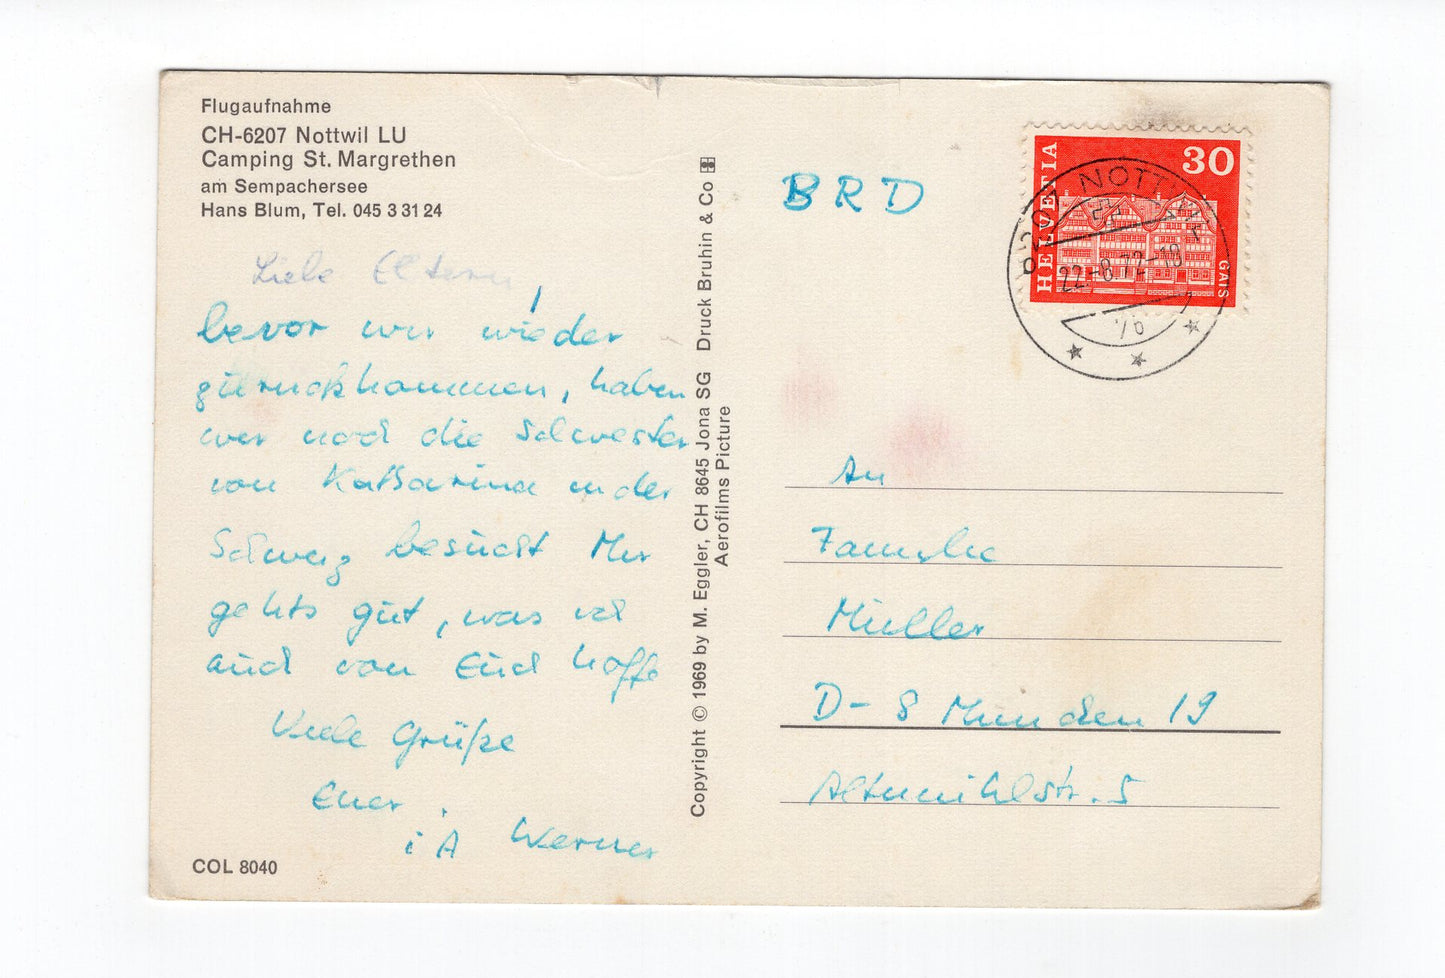 Flugaufnahme
CH-6207 Nottwil LU
Camping St. Margrethen
am Sempachersee
Hans Blum, Tel. 045 3 31 24
Liebe Eltern,
bevor wir wieder
zurückkommen, haben
wir noch die Schwester
von Katharina in der
Schweiz besucht Mir
gehts gut, was ich
auch von Euch hoffe
Viele Grüße
Euer
i A Werner
COL 8040
Copyright © 1969 by M. Eggler, CH 8645 Jona SG Druck Bruhin & Co
Aerofilms Picture
BRD
HELVETIA
30
GAIS
6207 NOTTWIL
22.-8.72-18
An
Familie
Müller
D-8 München 19
Altmühlstr. 5